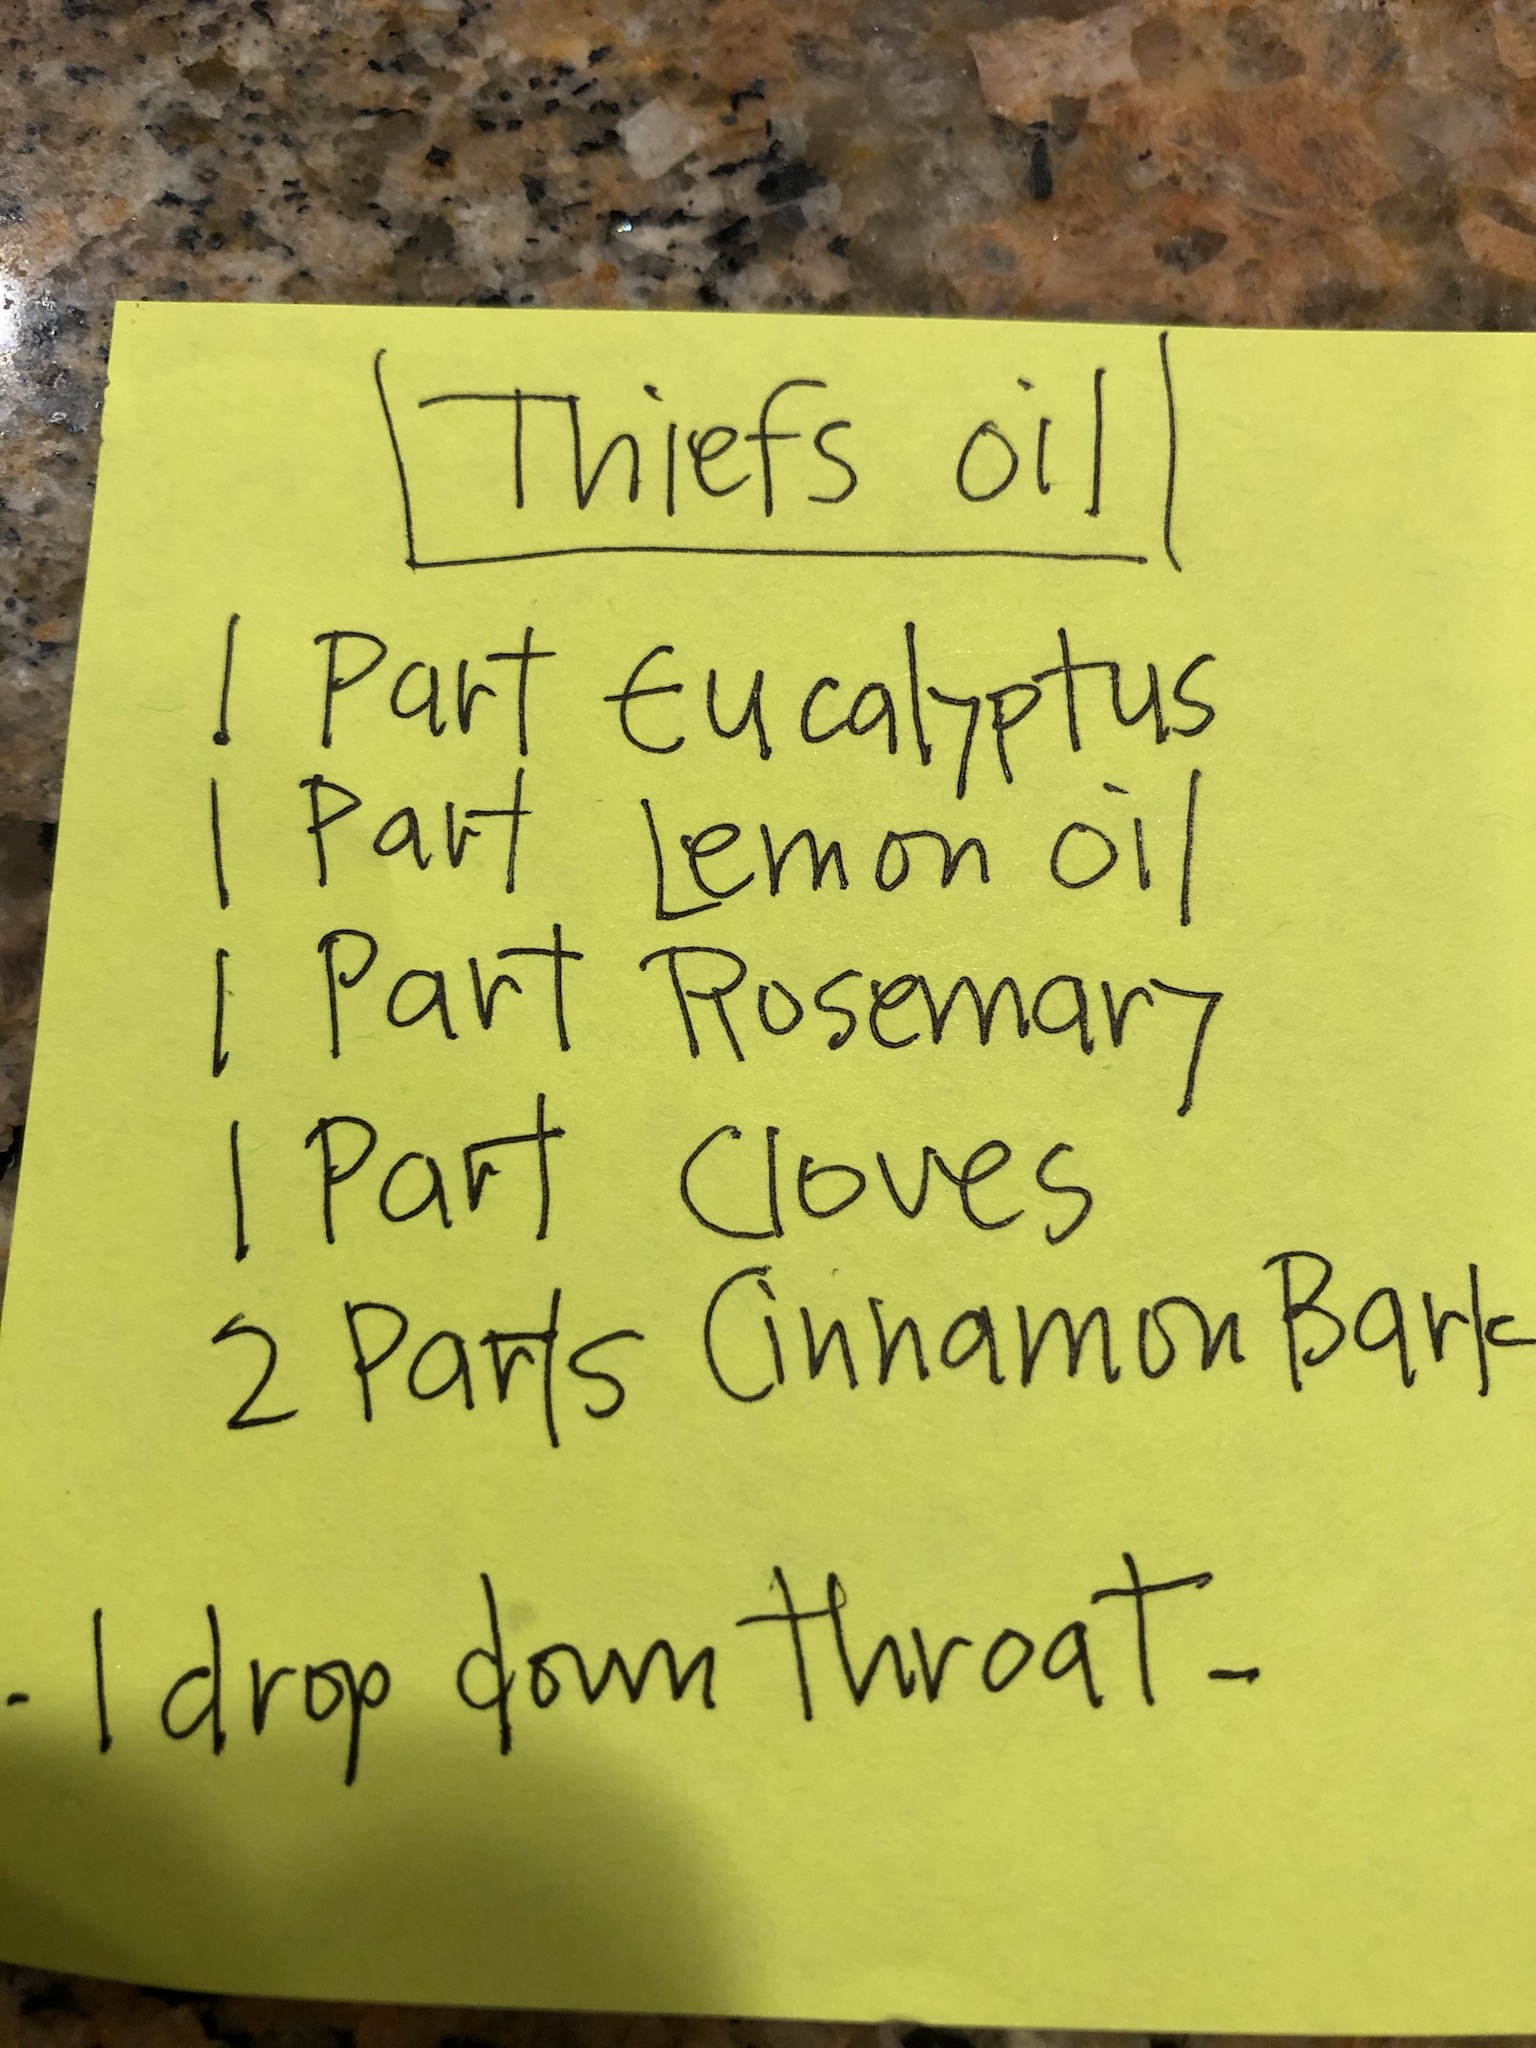 Thiefs oil
1 Part Eucalyptus
1 Part Lemon oil
1 Part Rosemary
1 Part Cloves
2 Parts Cinnamon Bark
- 1 drop down throat -